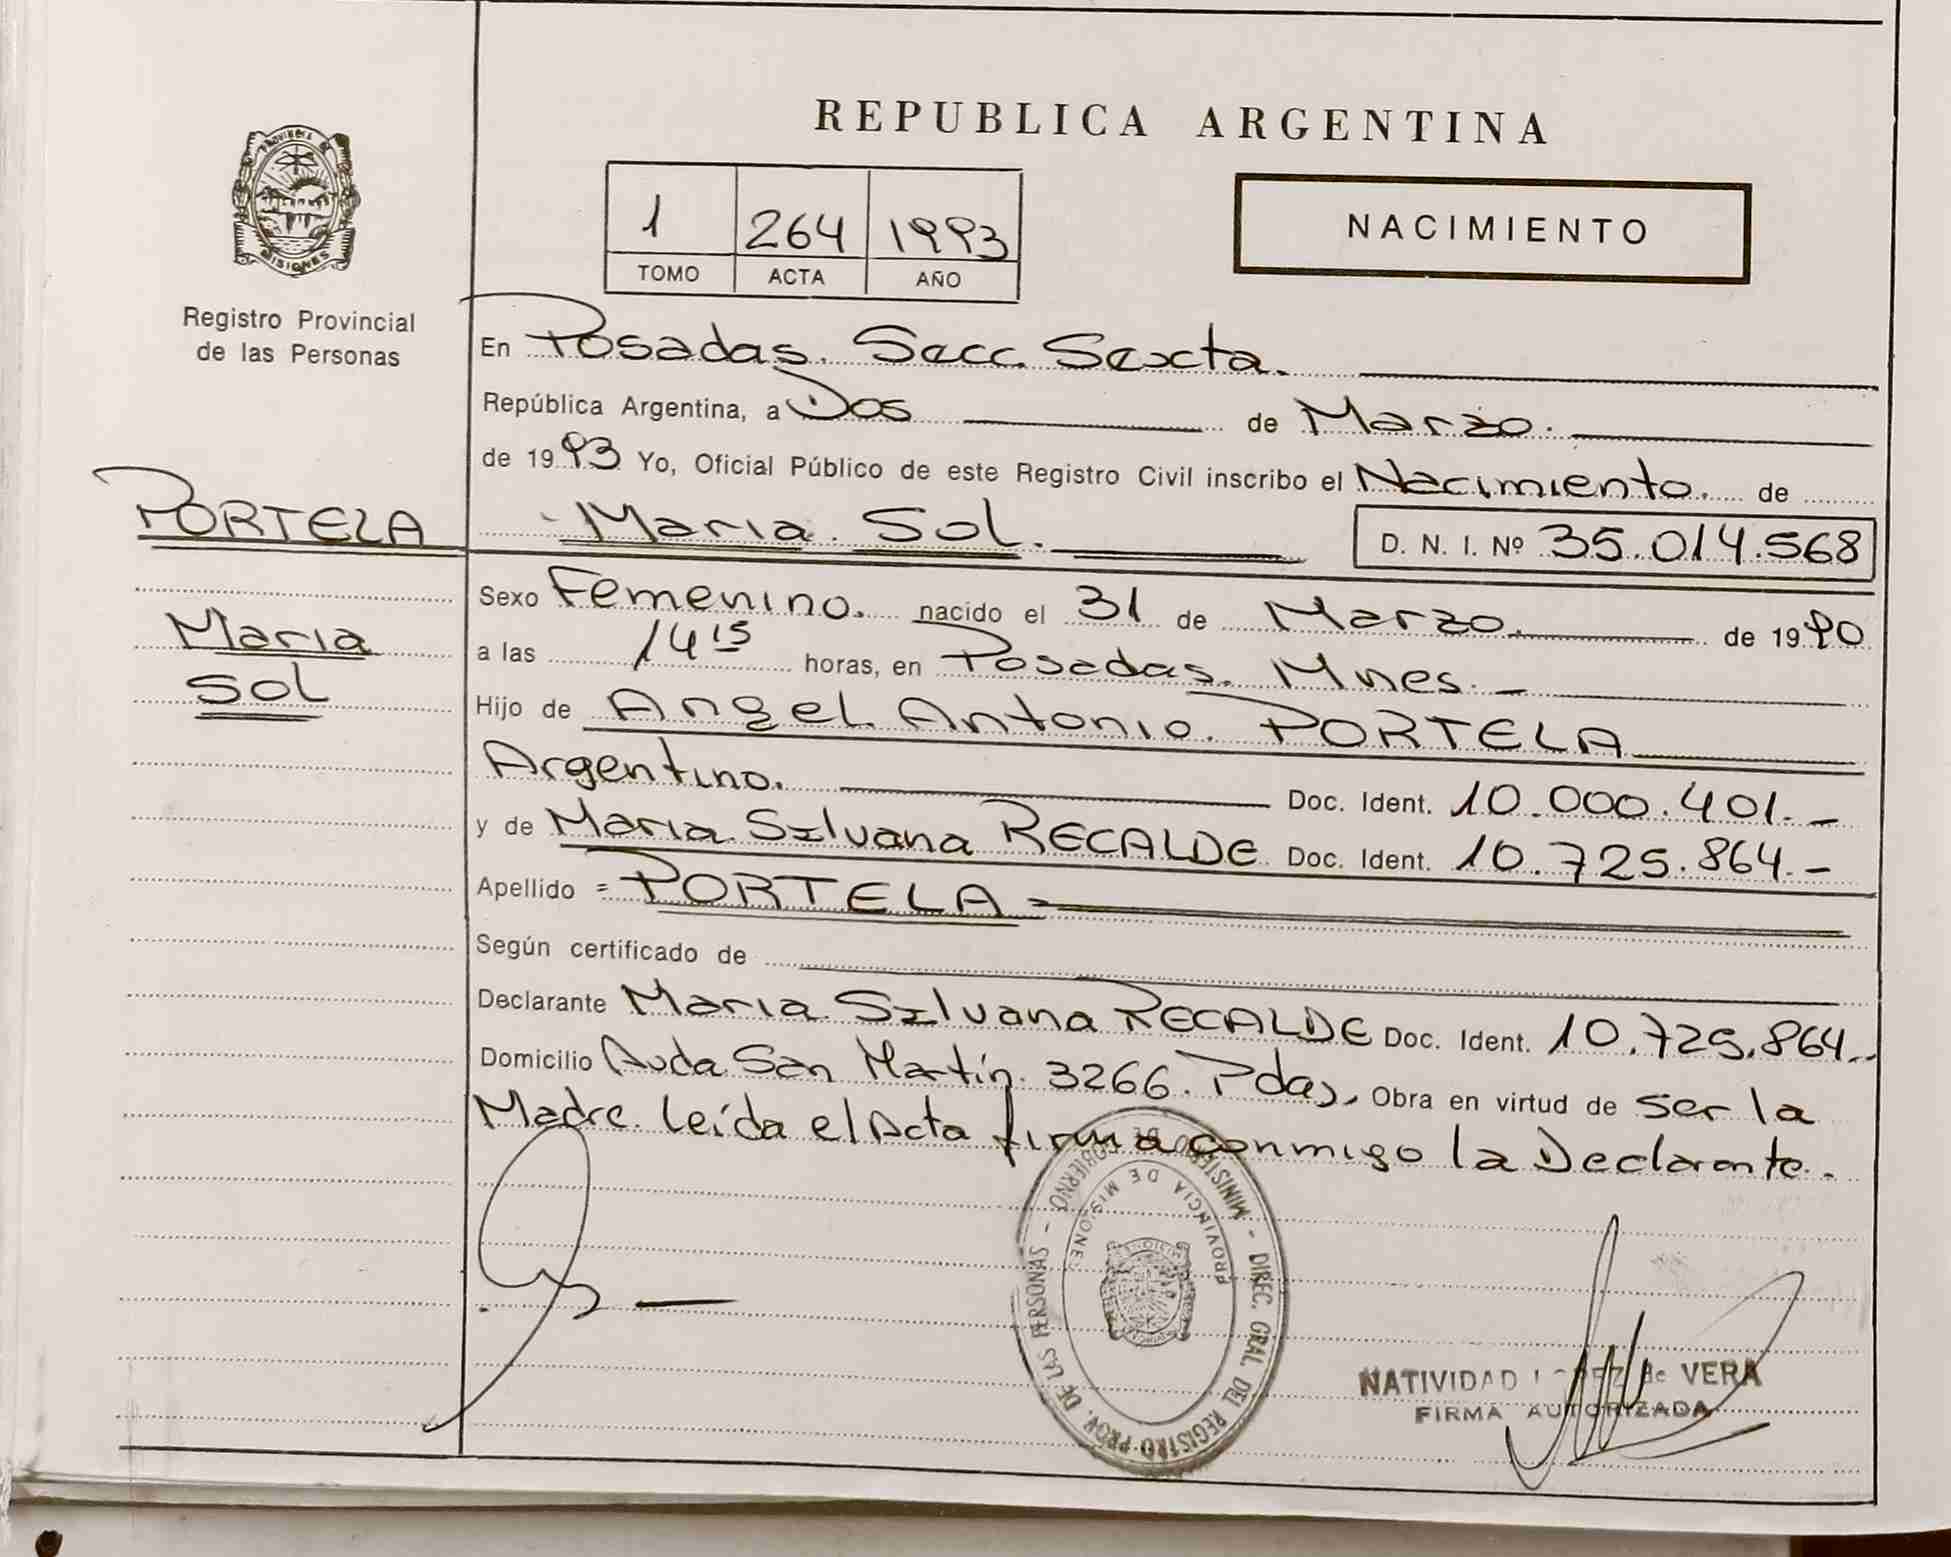 REPUBLICA ARGENTINA
PROVINCIA DE
MISIONES
Registro Provincial
de las Personas
1 264 1993
TOMO ACTA AÑO
NACIMIENTO
En Posadas. Secc. Sexta.
República Argentina, a Dos de Marzo.
de 1993 Yo, Oficial Público de este Registro Civil inscribo el Nacimiento. de
PORTELA
Maria Sol
Maria. Sol. D. N. I. Nº 35.014.568
Sexo Femenino. nacido el 31 de Marzo. de 1990
a las 14 15 horas, en Posadas. Mnes. -
Hijo de Angel Antonio. PORTELA
Argentino. Doc. Ident. 10.000.401.-
y de Maria Silvana RECALDE Doc. Ident. 10.725.864.-
Apellido = PORTELA =
Según certificado de
Declarante Maria Silvana RECALDE Doc. Ident. 10.725.864.-
Domicilio Avda San Martín. 3266. Pdas, Obra en virtud de ser la
Madre. leída el Acta firma conmigo la Declarante.-
MINISTERIO DE GOBIERNO - DIREC. GRAL. DEL REGISTRO PROV. DE LAS PERSONAS -
PROVINCIA DE MISIONES
NATIVIDAD LOPEZ de VERA
FIRMA AUTORIZADA